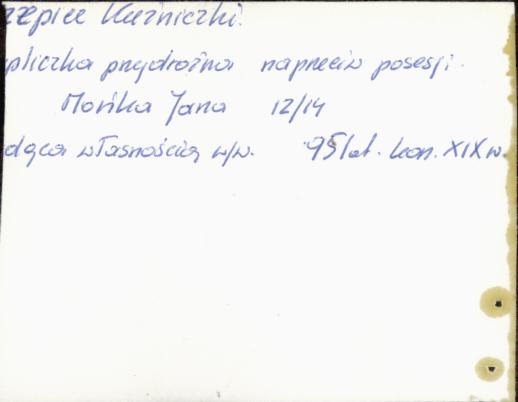 zepice Kuźniczki.
pliczka przydrożna naprzeciw posesji.
Mońka Jana 12/14
dąca własnością w/w. 95 lat. kon. XIX w.